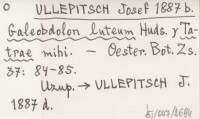 O ULLEPITSCH Josef 1887 b.
Galeobdolon luteum Huds. γ Ta-
trae mihi. — Oester. Bot. Zs.
37: 84-85.
Uzup. → ULLEPITSCH J.
1887 d.